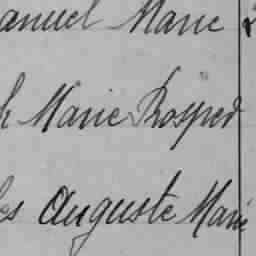 anuel Marie
h Marie Prosper
es Auguste Marie